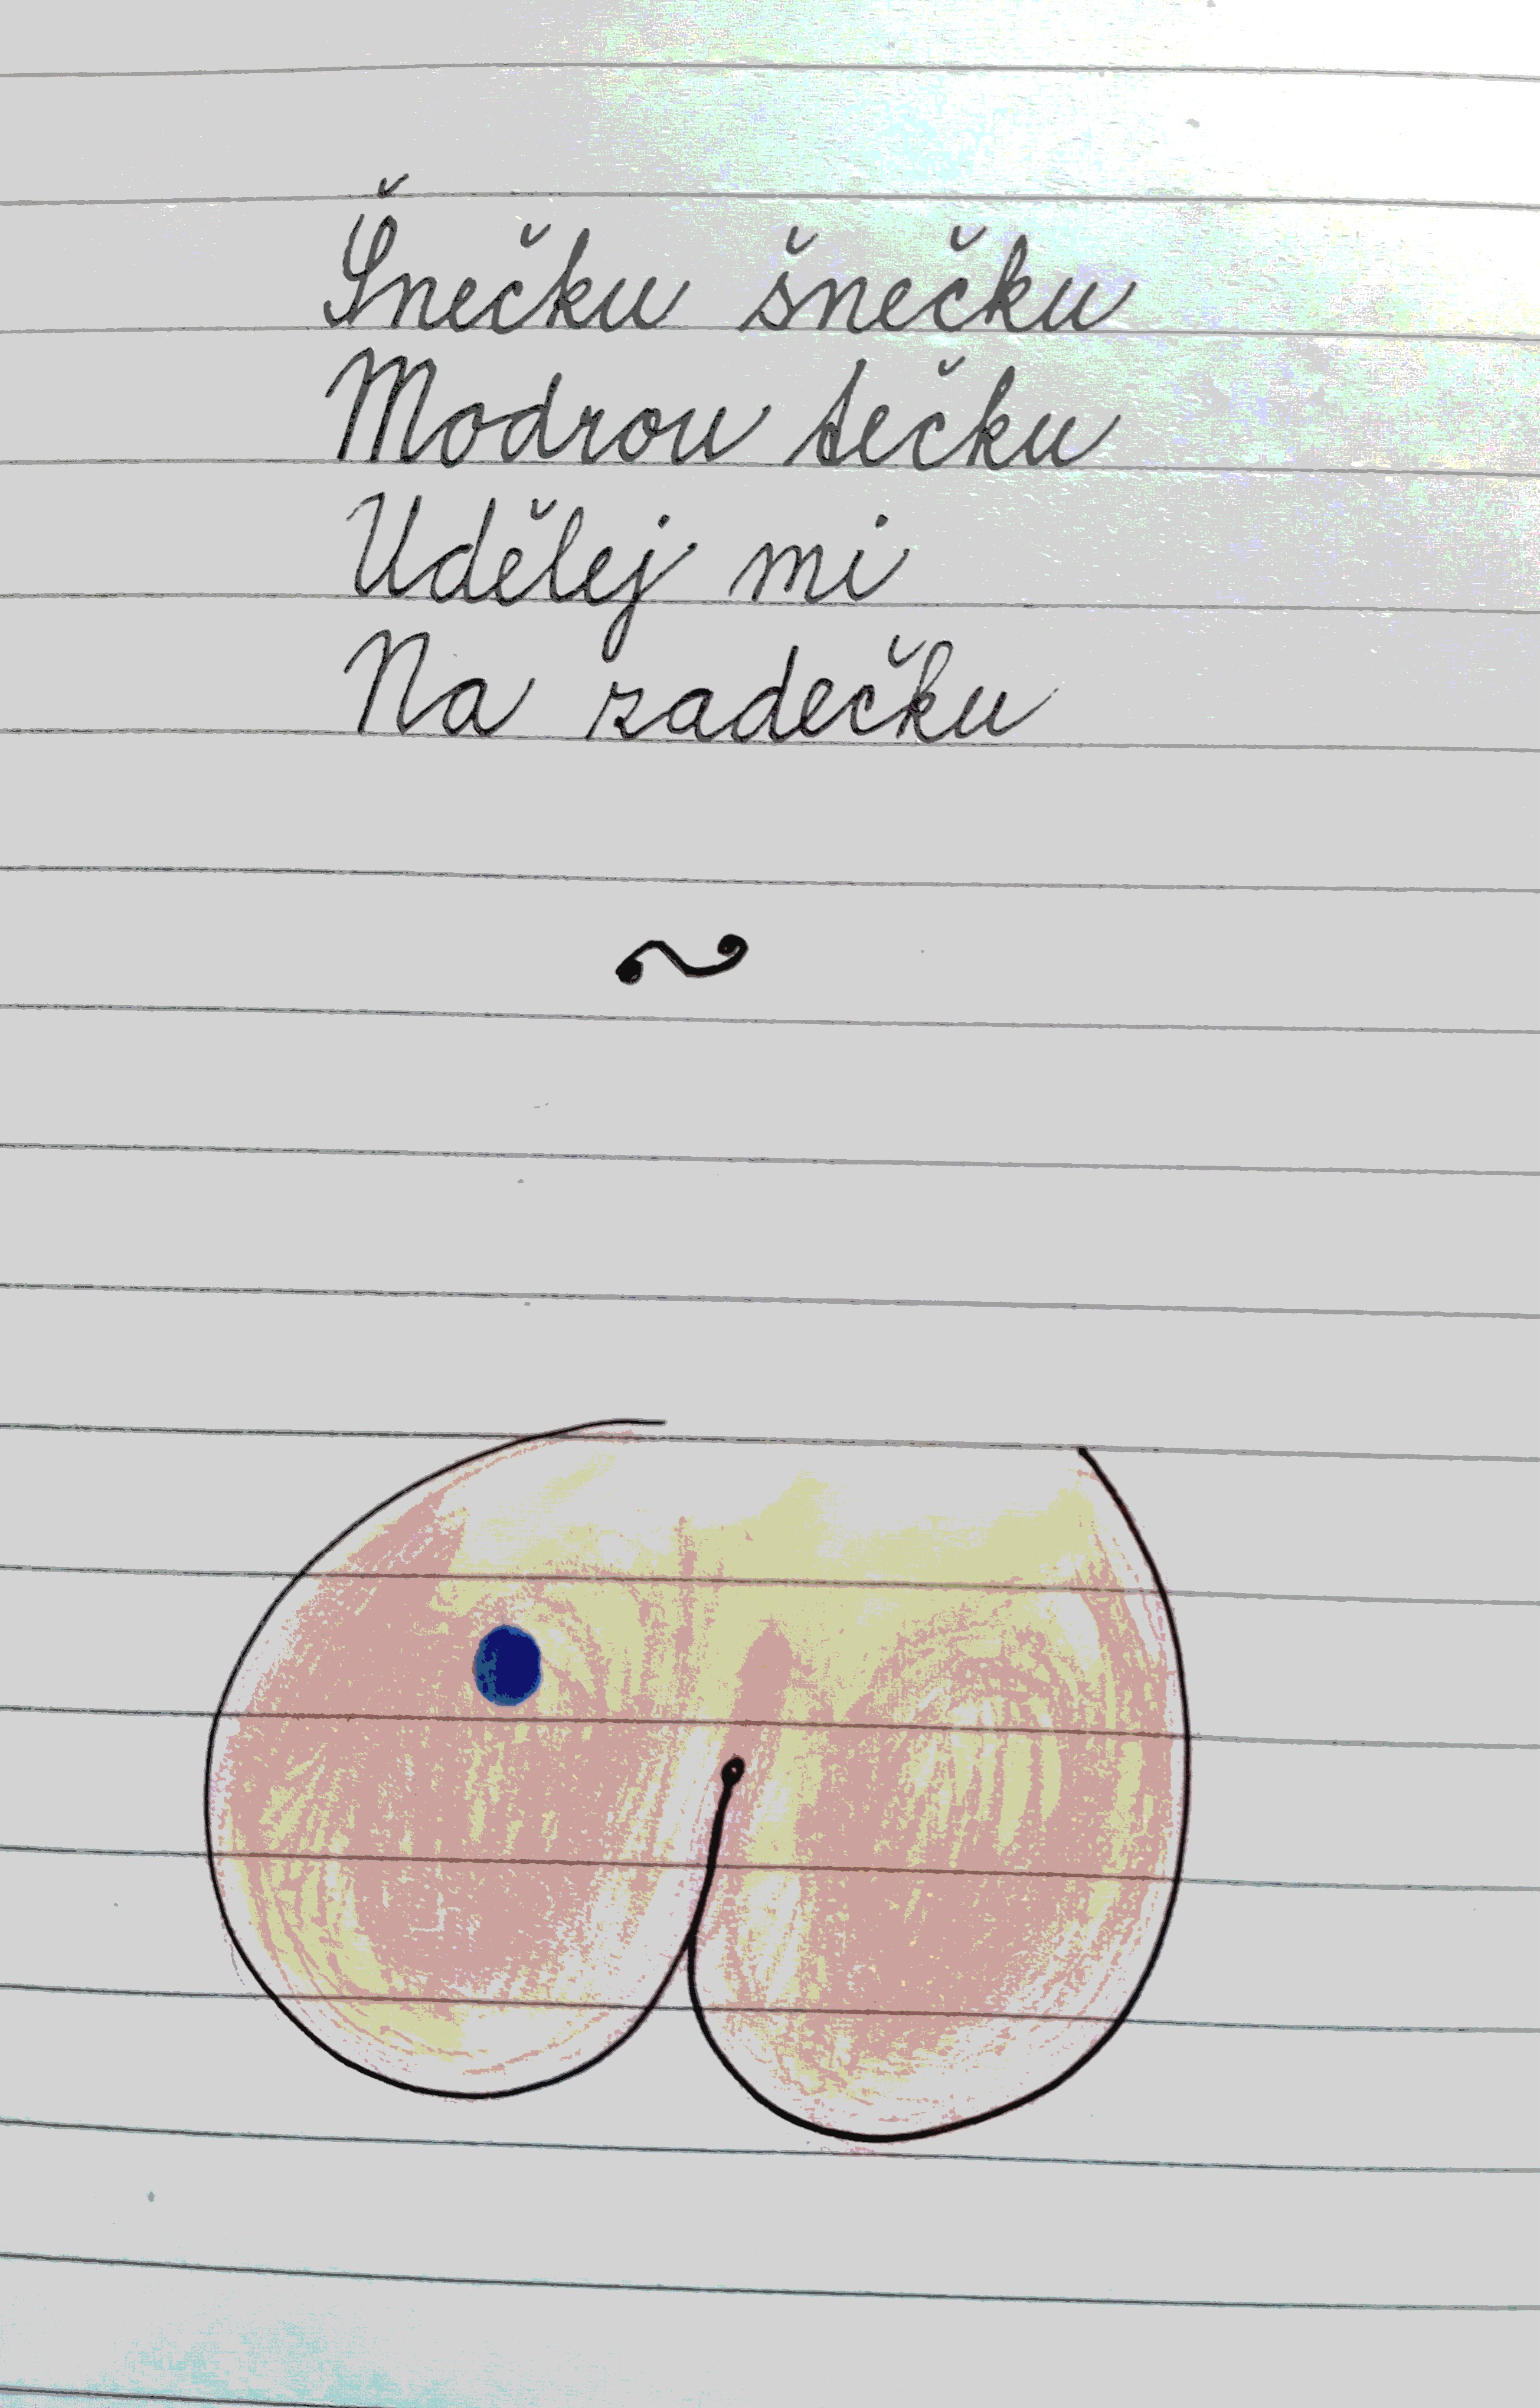 Šnečku šnečku
Modrou tečku
Udělej mi
Na zadečku